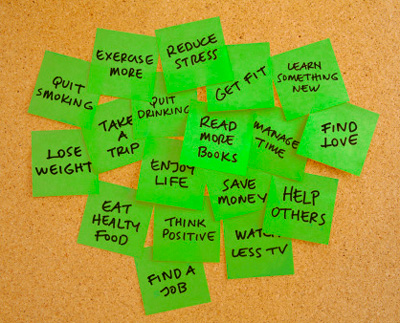 EXERCISE
MORE
REDUCE
STRESS
QUIT
SMOKING
QUIT
DRINKING
GET FIT
LEARN
SOMETHING
NEW
TAKE
A
TRIP
READ
MORE
BOOKS
MANAGE
TIME
FIND
LOVE
LOSE
WEIGHT
ENJOY
LIFE
SAVE
MONEY
HELP
OTHERS
EAT
HEALTY
FOOD
THINK
POSITIVE
WATCH
LESS TV
FIND A
JOB